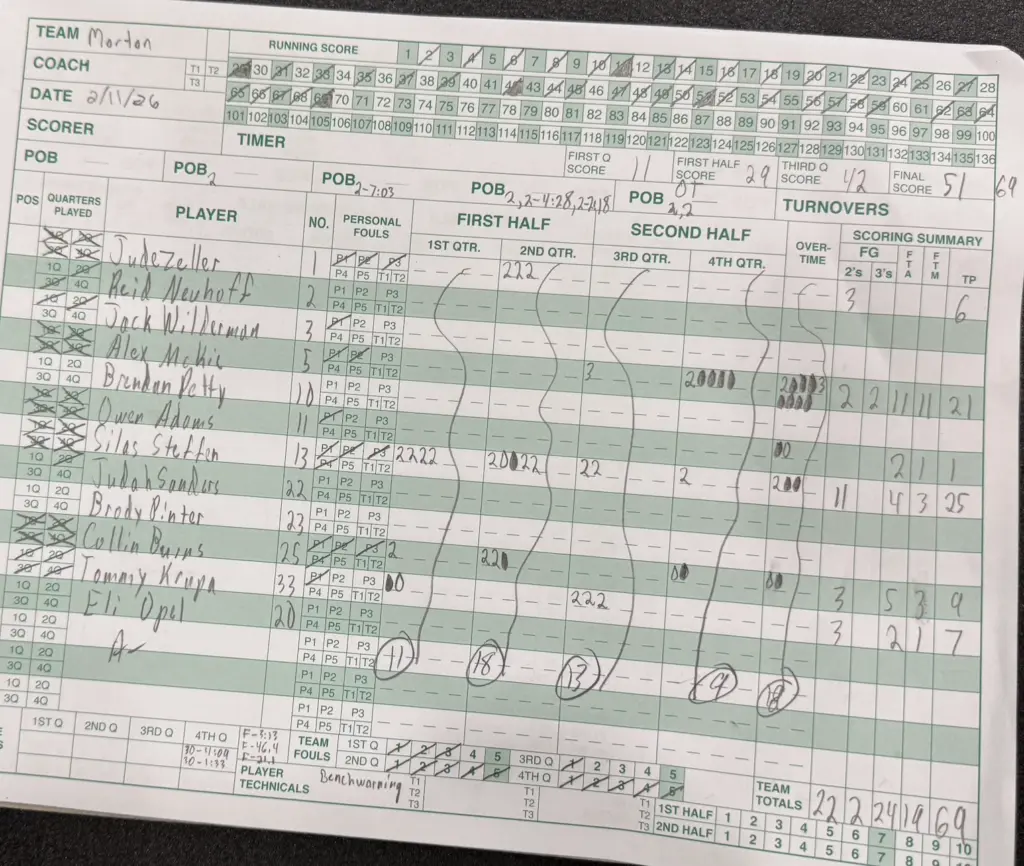 TEAM Morton
RUNNING SCORE 1 2 3 4 5 6 7 8 9 10 11 12 13 14 15 16 17 18 19 20 21 22 23 24 25 26 27 28
COACH T1 T2 T3
29 30 31 32 33 34 35 36 37 38 39 40 41 42 43 44 45 46 47 48 49 50 51 52 53 54 55 56 57 58 59 60 61 62 63 64
DATE 2/11/26
65 66 67 68 69 70 71 72 73 74 75 76 77 78 79 80 81 82 83 84 85 86 87 88 89 90 91 92 93 94 95 96 97 98 99 100
101 102 103 104 105 106 107 108 109 110 111 112 113 114 115 116 117 118 119 120 121 122 123 124 125 126 127 128 129 130 131 132 133 134 135 136
SCORER TIMER
FIRST Q SCORE 11 FIRST HALF SCORE 29 THIRD Q SCORE 42 FINAL SCORE 51 69
POB POB 2 POB 2-7:03 POB 2,2-4:28, POB OT 2,2 TURNOVERS
POS QUARTERS PLAYED PLAYER NO. PERSONAL FOULS FIRST HALF SECOND HALF OVER-TIME SCORING SUMMARY
1ST QTR. 2ND QTR. 3RD QTR. 4TH QTR. FG 2's 3's FTA FTM TP
1Q 2Q 3Q 4Q Jude Zeller 1 P1 P2 P3 P4 P5 T1 T2 222 3 6
1Q 2Q 3Q 4Q Reid Neuhoff 2 P1 P2 P3 P4 P5 T1 T2
1Q 2Q 3Q 4Q Jack Wilderman 3 P1 P2 P3 P4 P5 T1 T2
1Q 2Q 3Q 4Q Alex McKie 5 P1 P2 P3 P4 P5 T1 T2 3 2 2 3 2 2 11 11 21
1Q 2Q 3Q 4Q Brendan Petty 10 P1 P2 P3 P4 P5 T1 T2
1Q 2Q 3Q 4Q Owen Adams 11 P1 P2 P3 P4 P5 T1 T2 2 1 1
1Q 2Q 3Q 4Q Silas Steffen 13 P1 P2 P3 P4 P5 T1 T2 2222 20 22 22 2 2 11 4 3 25
1Q 2Q 3Q 4Q Judah Sanders 22 P1 P2 P3 P4 P5 T1 T2
1Q 2Q 3Q 4Q Brody Pinter 23 P1 P2 P3 P4 P5 T1 T2
1Q 2Q 3Q 4Q Collin Burns 25 P1 P2 P3 P4 P5 T1 T2 2 22 3 5 3 9
1Q 2Q 3Q 4Q Tommy Krupa 33 P1 P2 P3 P4 P5 T1 T2 222 3 2 1 7
1Q 2Q 3Q 4Q Eli Opel 20 P1 P2 P3 P4 P5 T1 T2
1Q 2Q 3Q 4Q P1 P2 P3 P4 P5 T1 T2 11 18 13 9 18
1Q 2Q 3Q 4Q P1 P2 P3 P4 P5 T1 T2
1Q 2Q 3Q 4Q P1 P2 P3 P4 P5 T1 T2
1ST Q 2ND Q 3RD Q 4TH Q F-3:13
30-1:33 F-46.4
TEAM FOULS 1ST Q 1 2 3 4 5 3RD Q 1 2 3 4 5
2ND Q 1 2 3 4 5 4TH Q 1 2 3 4 5
PLAYER TECHNICALS Benchwarning T1 T2 T3 T1 T2 T3 T1 T2 T3
TEAM TOTALS 22 2 24 19 69
1ST HALF 1 2 3 4 5 6 7 8 9 10
2ND HALF 1 2 3 4 5 6 7 8 9 10